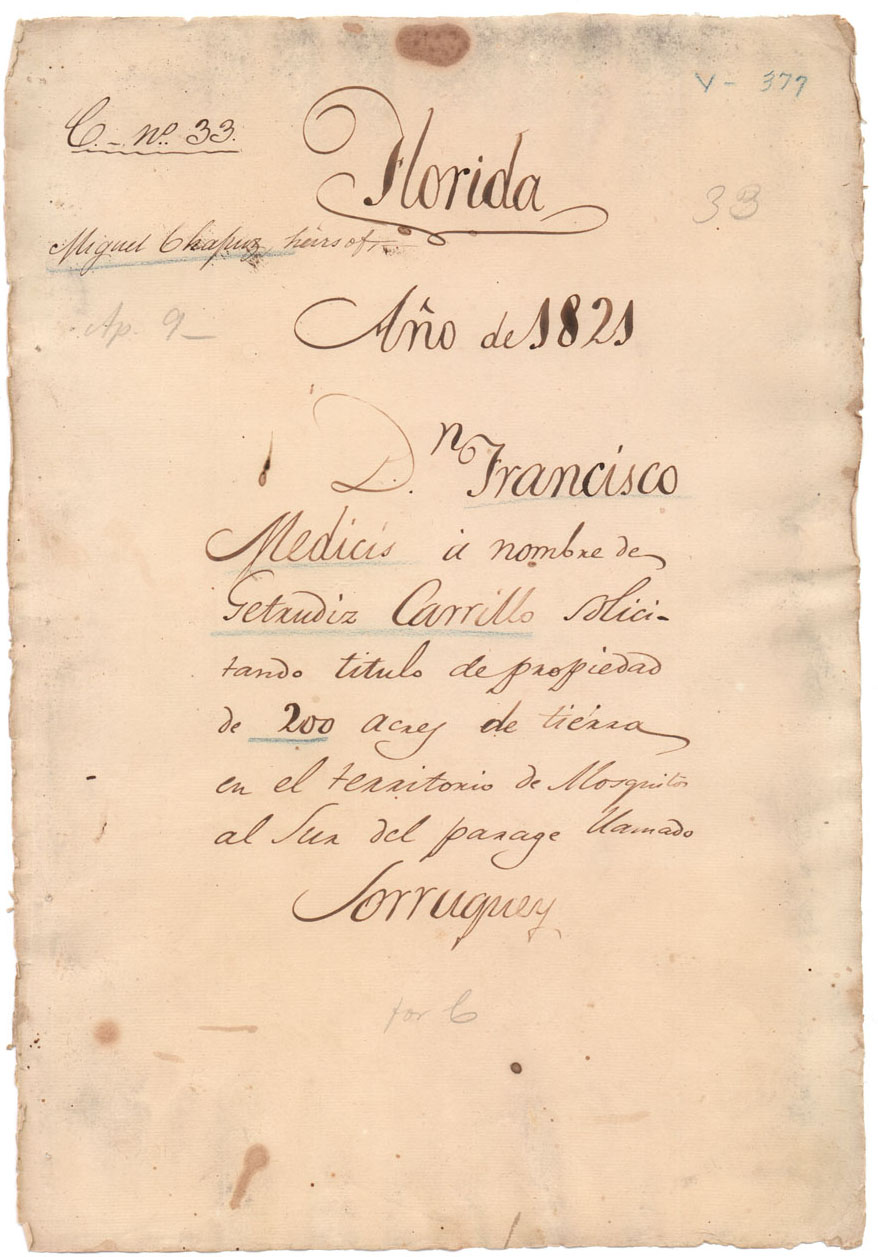 V - 377
C. - nº. 33.
Florida
33
Miguel Chapuz, heirs of,
Ap. 9 -
Año de 1821
D.n Francisco
Medicis á nombre de
Getrudiz Carrillo solici-
tando titulo de propiedad
de 200 acres de tierra
en el territorio de Mosquitos
al Sur del parage llamado
Sorruquey
for C